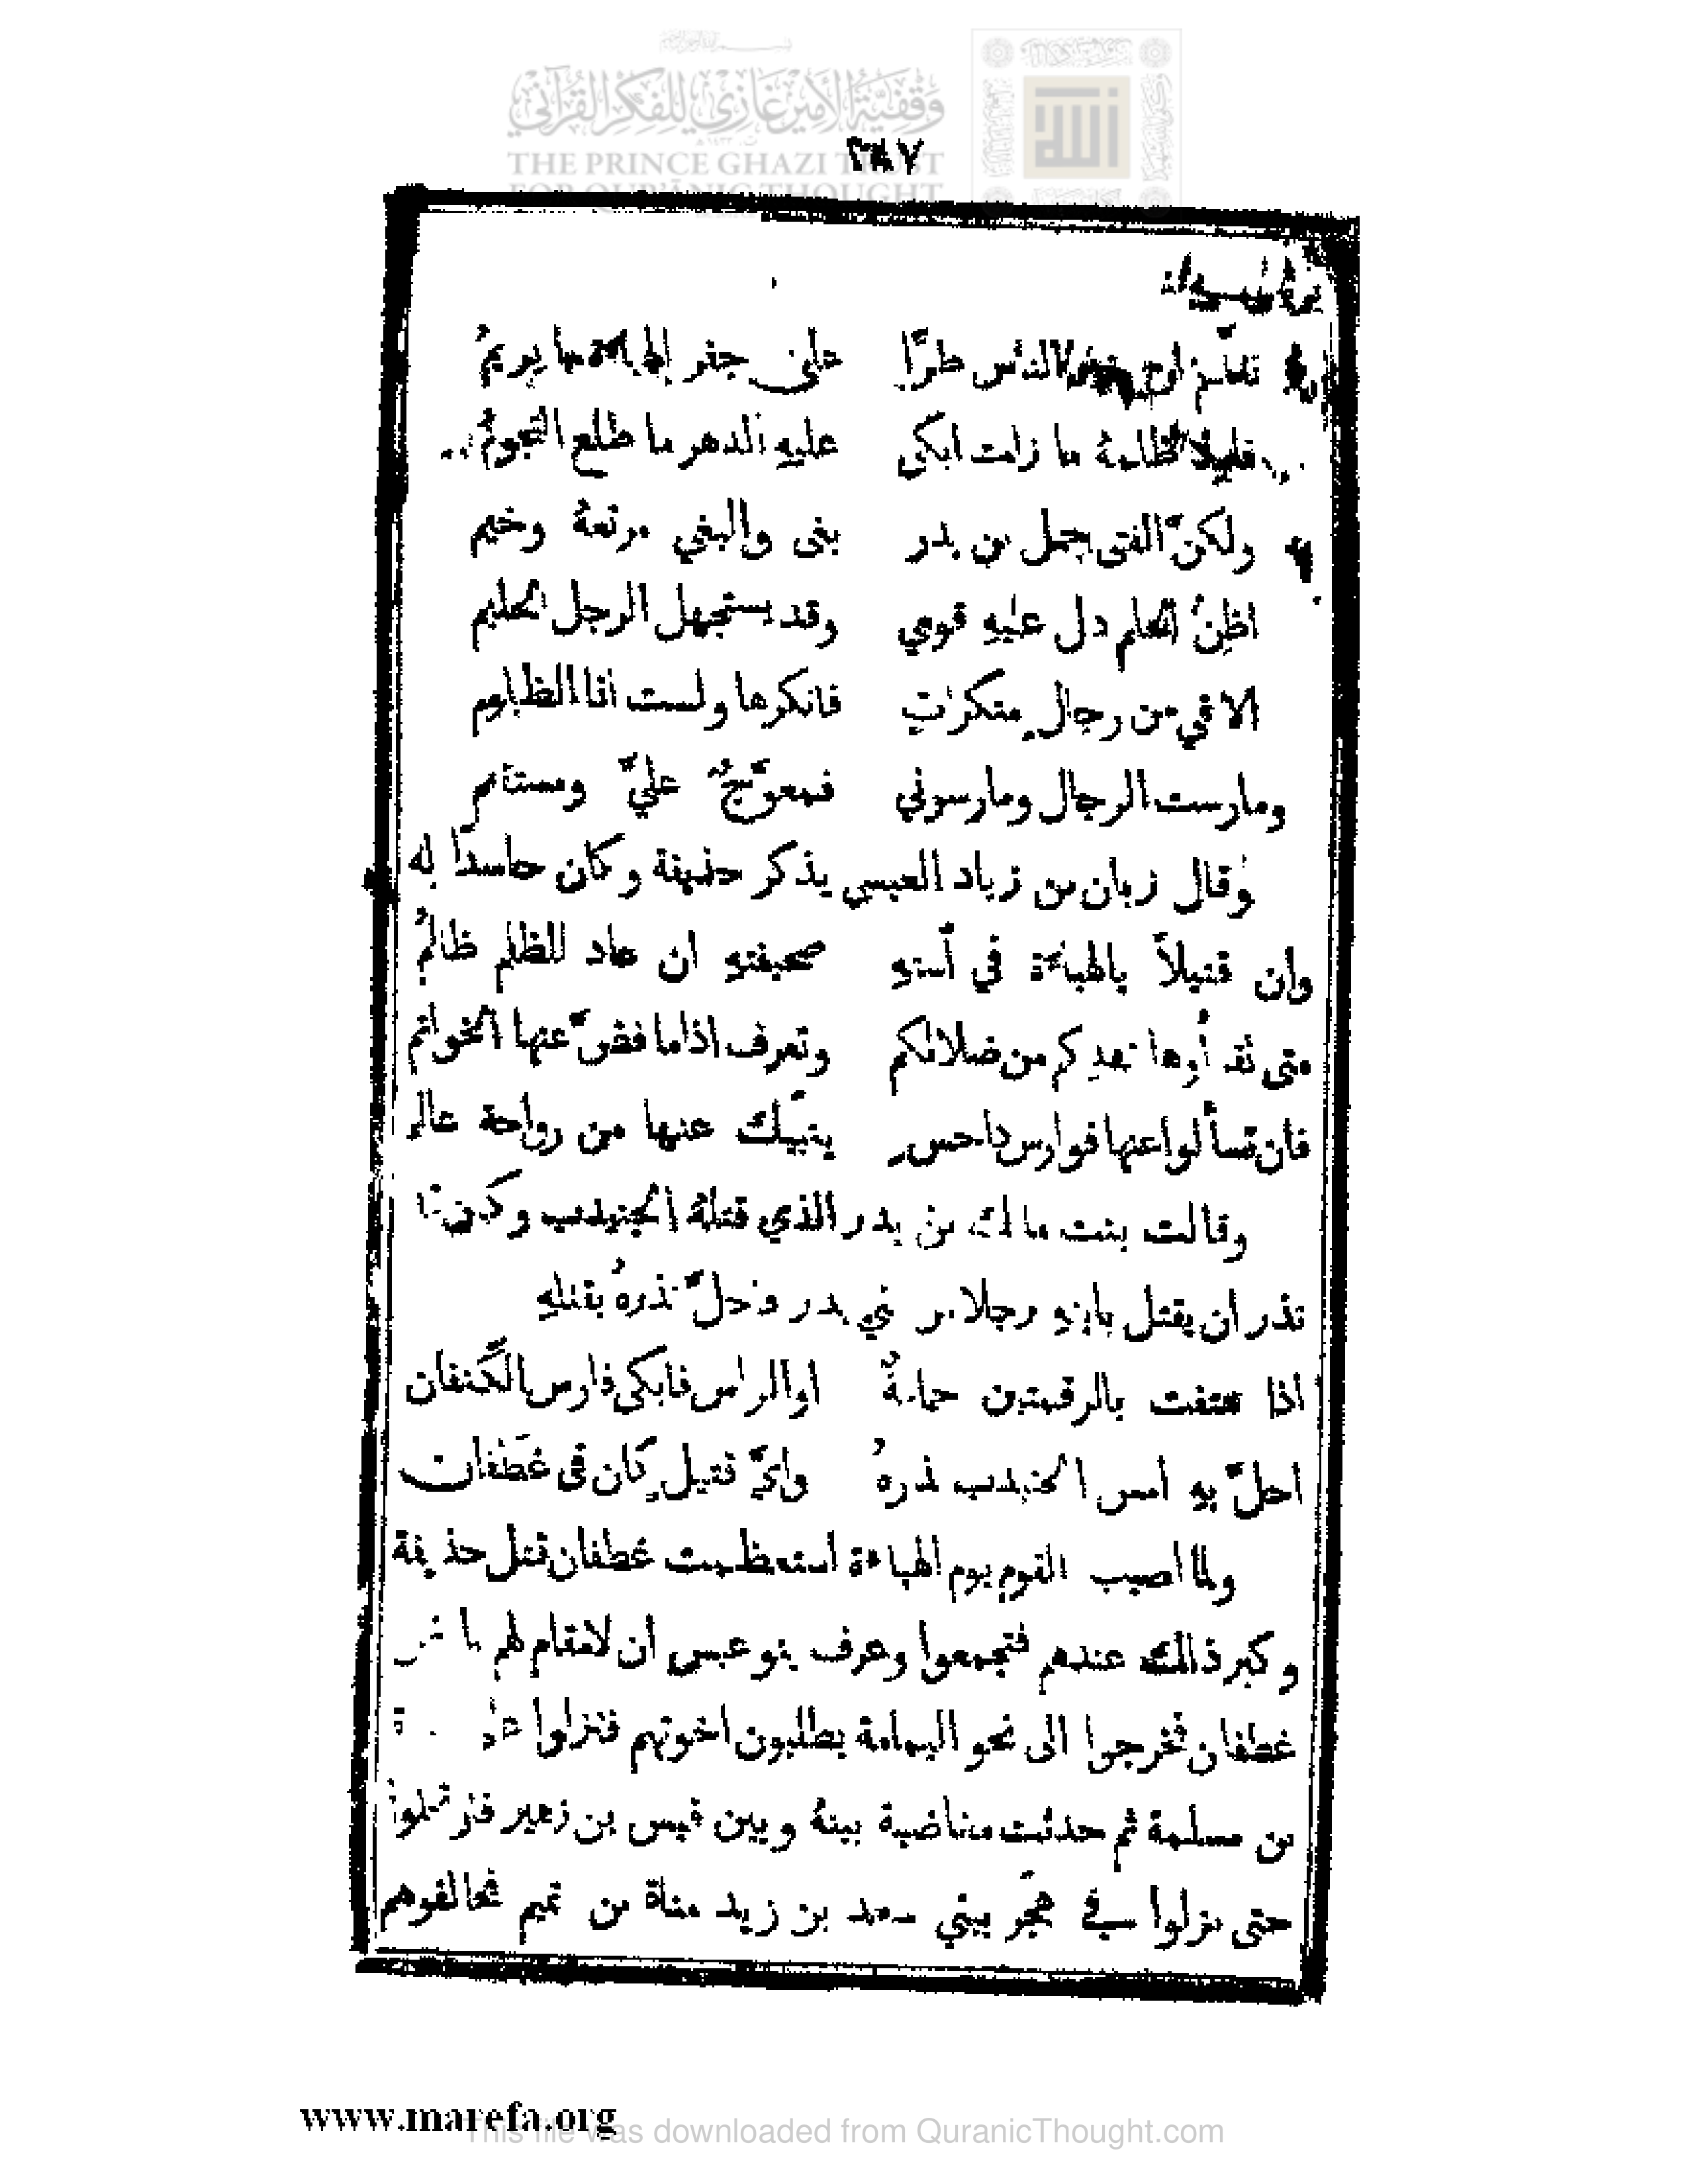 وقفية الأمير غازي للفكر القرآني
THE PRINCE GHAZI TRUST
FOR QUR'ĀNIC THOUGHT
٢٨٧
الناس طرًّا على جفر الهباءة ما يريمُ
ظلمهُ ما زلت ابكي عليهِ الدهر ما طلع النجومُ
ولكنّ الفتى حمل بن بدر بغى والبغي مرتعهُ وخيم
اظنُّ الحلم دل عليهِ قومي وقد يستجهل الرجل الحليم
الاقي من رجالٍ منكراتٍ فانكرها ولست انا الظلوم
ومارست الرجال ومارسوني فمعوّجٌ عليّ ومستقيم
وقال زبان بن زياد العبسي يذكر حذيفة وكان حاسدًا له
وان قتيلاً بالهباءة في أستهِ صحيفتهِ ان عاد للظلم ظالمُ
متى تقرأوها تهدكم من ضلالكم وتعرف اذا ما فضّ عنها الخواتم
فان تسألوا عنها فوارس داحسٍ ينبّيك عنها من رواحة عالم
وقالت بنت مالك بن بدر الذي قتلهُ الجنيدب وكان
نذر ان يقتل بابنهِ رجلا من بني بدر وحلّ نذرهُ بقتلهِ
اذا هتفت بالرقمتين حمامةٌ او الراس فابكي فارس الكَتفان
احلّ بهِ امس الجنيدب نذرهُ وايّ قتيلٍ كان في غَطَفان
ولما اصيب القوم يوم الهباءة استعظمت غطفان قتل حذيفة
وكبر ذلك عندهم فتجمعوا وعرف بنو عبس ان لا مقام لهم
غطفان فخرجوا الى نحو اليمامة يطلبون اخوتهم فنزلوا
بن مسلمة ثم حدثت مناضبة بينهُ وبين قيس بن زهير فارتحلوا
حتى نزلوا في هجَر ببني سعد بن زيد مناة من تميم فحالفوهم
www.marefa.org
This file was downloaded from QuranicThought.com